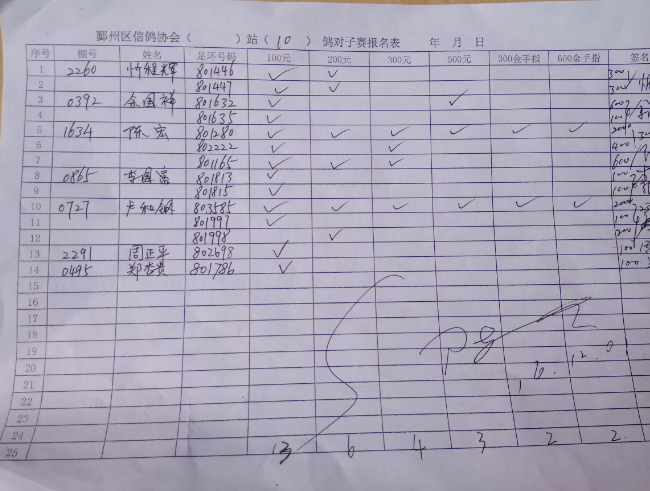 鄞州区信鸽协会（ ）站（ 10 ） 鸽对子赛报名表 年 月 日
序号 棚号 姓名 足环号码 100元 200元 300元 500元 300金手指 600金手指 签名
1 2260 忻继辉 801446 ✓ ✓ 300
2 801447 ✓ ✓ 300
3 0392 余国祥 801632 ✓ ✓ 600
4 801635 ✓ 100
5 1634 陈宏 801280 ✓ ✓ ✓ ✓ ✓ ✓ 2000
6 802222 ✓ ✓ 400
7 801165 ✓ ✓ ✓ 600
8 0865 李国富 801813 ✓ 100
9 801815 ✓ 100
10 0727 803585 ✓ ✓ ✓ ✓ ✓ ✓ 2000
11 801997 ✓ 100
12 801998 ✓ 200
13 2291 周正平 802698 ✓ 100
14 0495 郑 贵 801786 ✓ 100
15
16
17
18
19
20
21
22
23
24
25 13 6 4 3 2 2